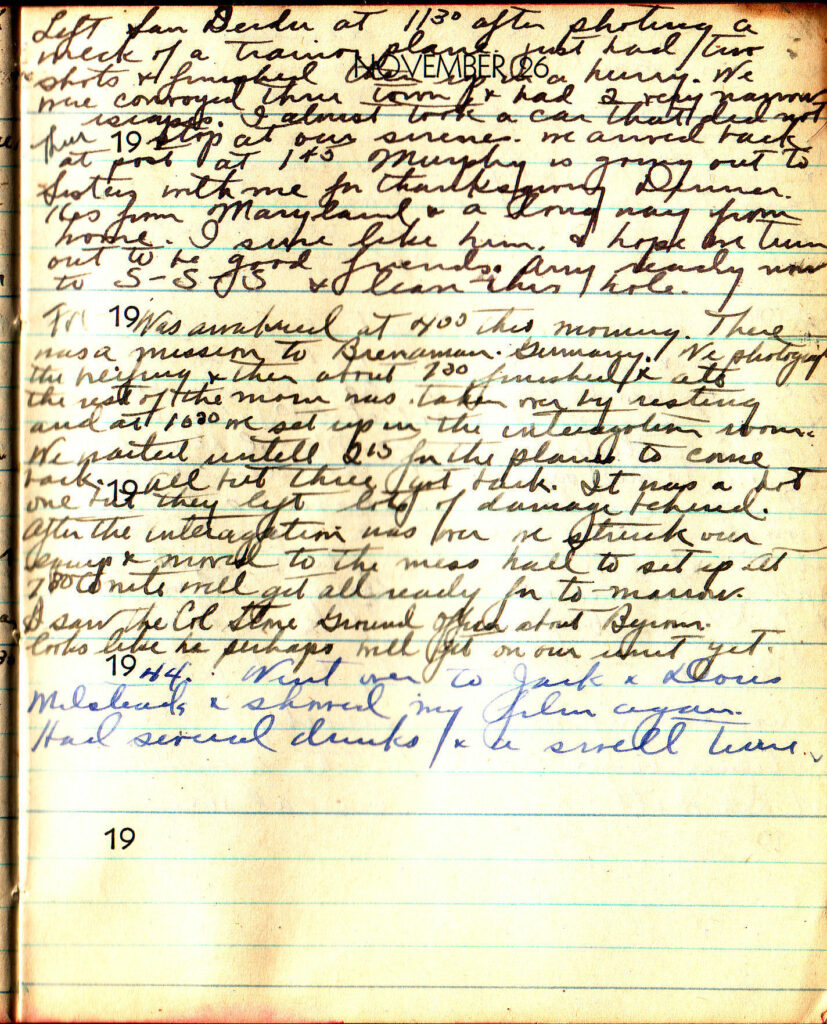 Left San Berdu at 1130 after shoting a
wreck of a training plane just had two
shots & finished in a hurry. We
NOVEMBER 26
were convoyed thru town & had 2 very narrow
escapes. I almost took a car that did not
19 stop at our sirene. we arrived back
at post at 145 Murphy is going out to
Sisters with me for thanksgiving Dinner.
Hes from Maryland & a long way from
home. I sure like him. & hope we turn
out to be good friends. Any ready now
to S-S-S & leave this hole.
Fri 19 Was awakened at 400 this morning. There
was a mission to Germany. We photograph
the & then about 730 finished & ate
the rest of the morn was taken over by resting
and at 1030 we set up in the interagation room.
We waited untill 215 for the planes to come
back. All but three got back. It was a hot
19
one but they left lots of damage behind.
After the interagation was over we struck our
equip & moved to the mess hall to set up at
730 to nite will get all ready for to-marrow.
I saw the Col Stone Ground officer about Byron.
looks like he perhaps will get on our unit yet.
1944. Went over to Jack & Doris
Milsteads & showed my film again.
Had several drinks & a swell time.
19